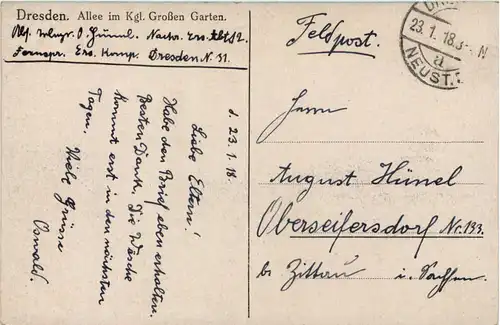 Dresden. Allee im Kgl. Großen Garten.
O. Hünel. Nachr. Ers. Abt. 12.
Fernspr. Ers. Komp. Dresden N. 31
d. 23.1.18.
Liebe Eltern!
Habe den Brief eben erhalten.
Besten Dank. Die Wäsche
kommt erst in den nächsten
Tagen.
Viele Grüsse
Oswald.
23.1.18
NEUST.
a
Feldpost.
Herrn
August Hünel
Oberseifersdorf Nr. 133.
b. Zittau i. Sachsen.